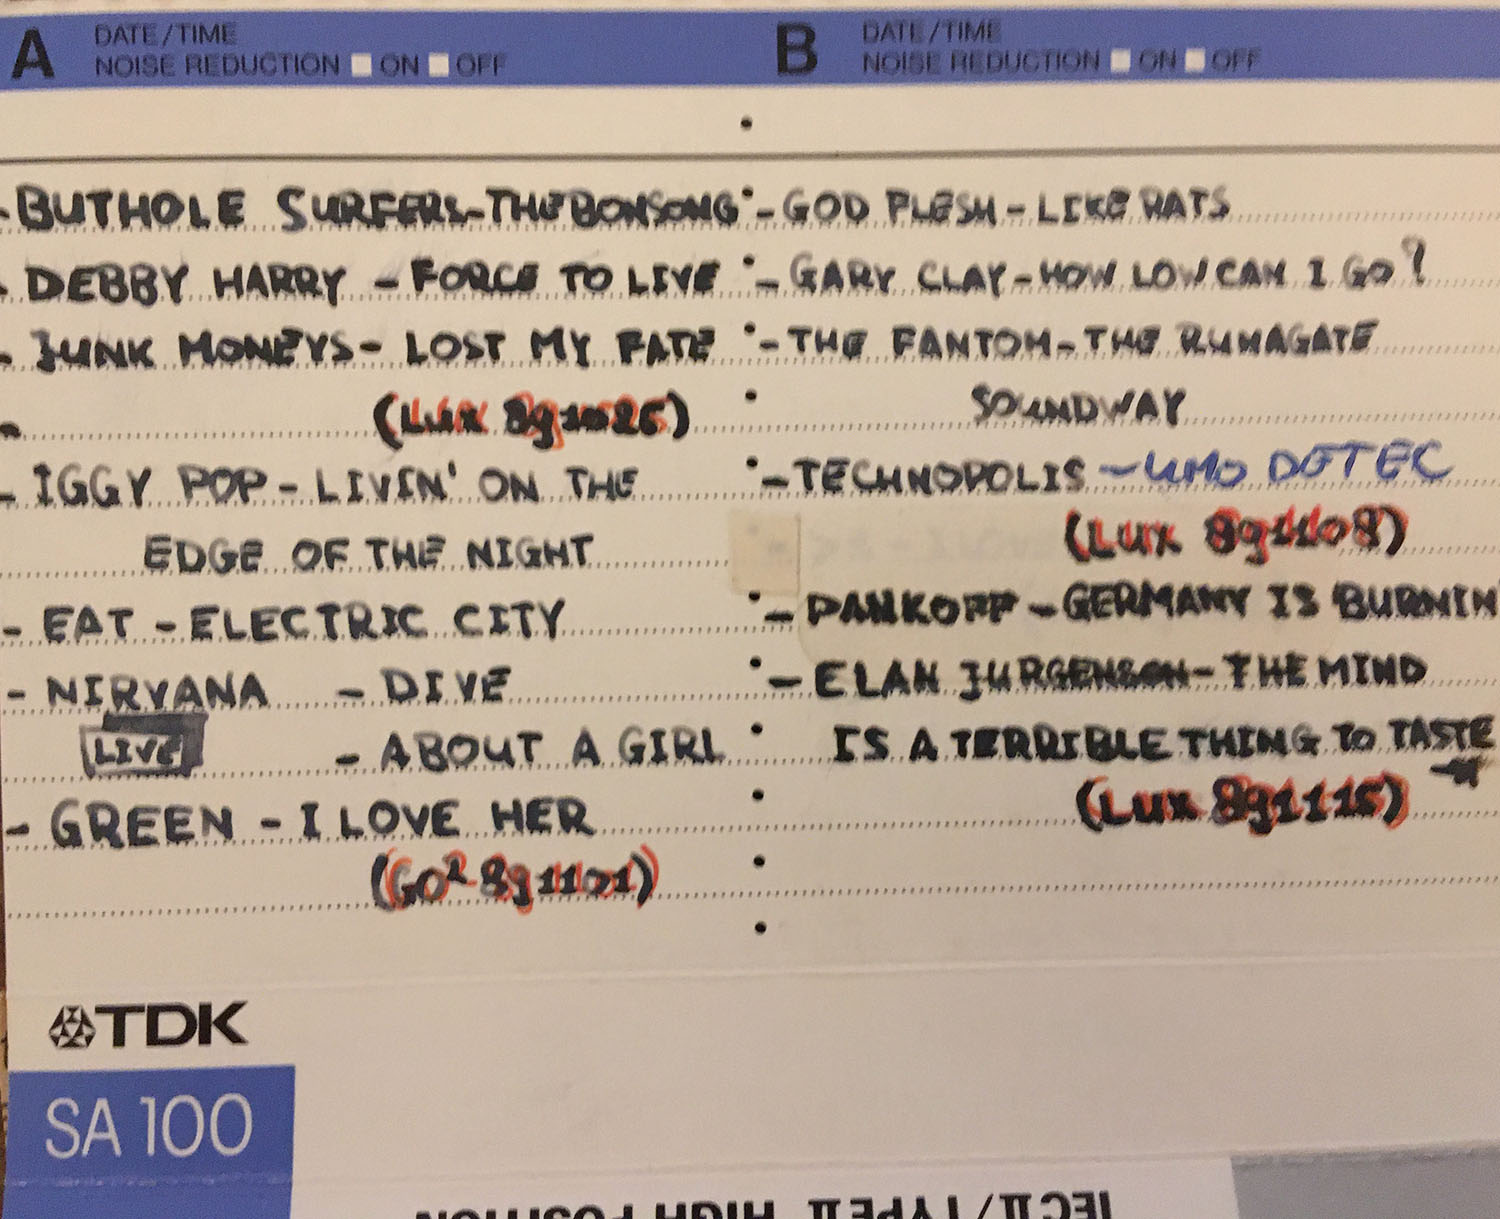 A DATE/TIME
NOISE REDUCTION ON OFF
- BUTHOLE SURFERS - THE BONSONG
- DEBBY HARRY - FORCE TO LIVE
- JUNK MONEYS - LOST MY FATE
(Lux 891025)
- IGGY POP - LIVIN' ON THE
EDGE OF THE NIGHT
- EAT - ELECTRIC CITY
- NIRVANA - DIVE
LIVE - ABOUT A GIRL
- GREEN - I LOVE HER
(GO² 891101)
B DATE/TIME
NOISE REDUCTION ON OFF
- GOD FLESH - LIKE RATS
- GARY CLAY - HOW LOW CAN I GO?
- THE FANTOM - THE RUNAGATE
SOUNDWAY
- TECHNOPOLIS - UMO DETEC
(Lux 891108)
- PANKOFF - GERMANY IS BURNIN
- ELAN JURGENSON - THE MIND
IS A TERRIBLE THING TO TASTE
(Lux 891115)
TDK
SA 100
IEC II/TYPE II HIGH POSITION